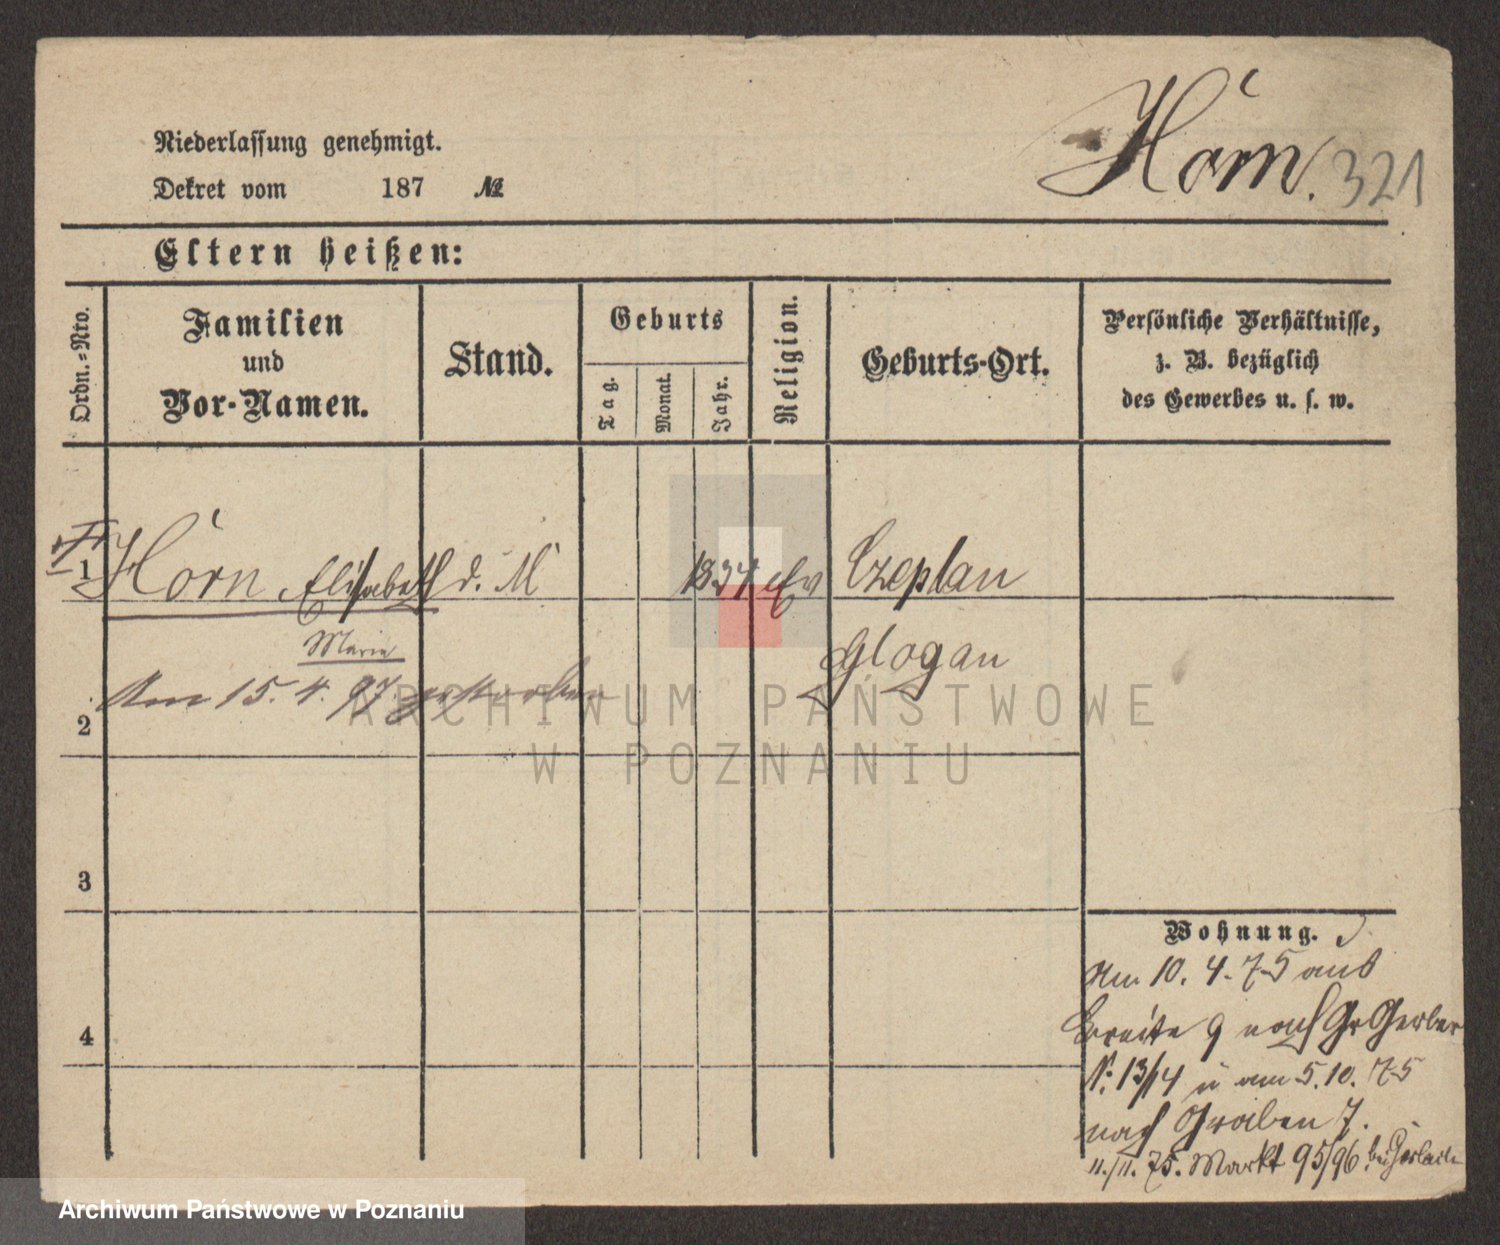 Niederlassung genehmigt.
Dekret vom 187 №
Horn. 321
Eltern heißen:
Ordn.-Nro.
Familien
und
Vor-Namen.
Stand.
Geburts
Tag.
Monat.
Jahr.
Religion.
Geburts-Ort.
Persönliche Verhältnisse,
z. B. bezüglich
des Gewerbes u. s. w.
1 Horn Elisabeth d. M 1834 Ev Czeplau
Marie
Glogau
2 Am 15. 4. 97 gestorben
3
4
Wohnung.
Am 10. 4. 75 aus
Breite 9 nach Gr Gerber
N. 13/14 u am 5. 10. 75
nach Graben 7.
11./11. 75. Markt 95/96 bei
ARCHIWUM PAŃSTWOWE
W POZNANIU
Archiwum Państwowe w Poznaniu